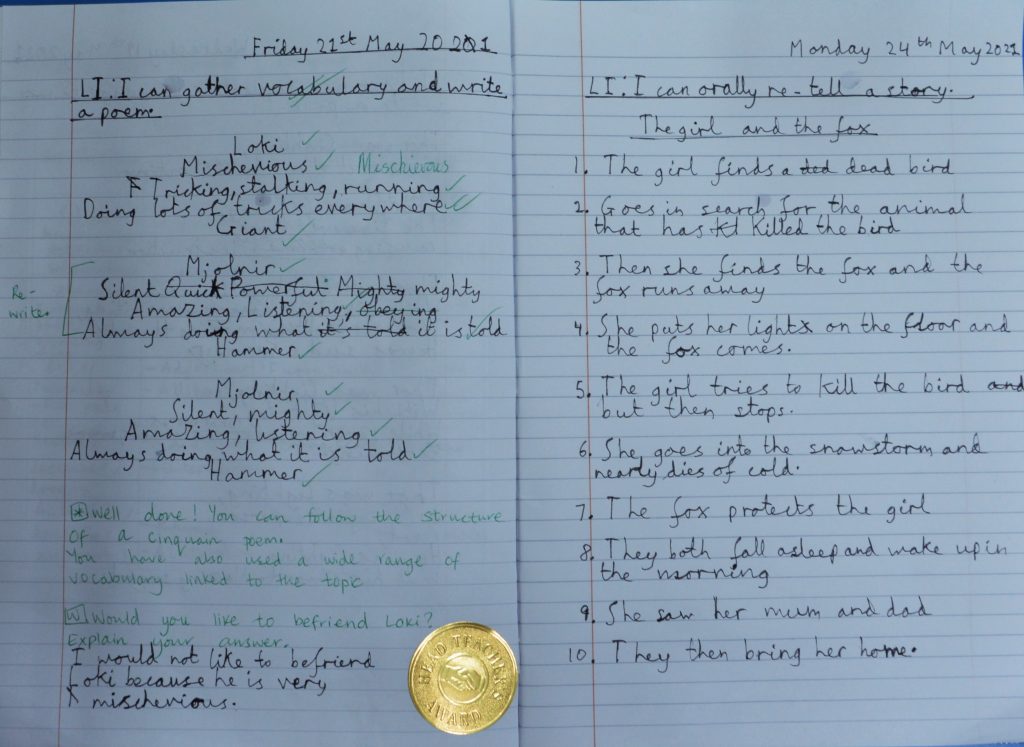 Friday 21st May 2021
LI: I can gather vocabulary and write
a poem.
Loki
Mischevious Mischievous
Tricking, stalking, running
Doing lots of tricks everywhere
Giant
Mjolnir
Silent Quick Powerful Mighty mighty
Re-
write.
Amazing, Listening, obeying
Always doing what it's told it is told
Hammer
Mjolnir
Silent, mighty
Amazing, listening
Always doing what it is told
Hammer
* Well done! You can follow the structure
of a cinquain poem.
You have also used a wide range of
vocabulary linked to the topic
W Would you like to befriend Loki?
Explain your answer.
I would not like to befriend
Loki because he is very
mischevious.
HEAD TEACHER'S
AWARD
Monday 24th May 2021
LI: I can orally re-tell a story.
The girl and the fox
1. The girl finds a ded dead bird
2. Goes in search for the animal
that has killed the bird
3. Then she finds the fox and the
fox runs away
4. She puts her light on the floor and
the fox comes.
5. The girl tries to kill the bird and
but then stops.
6. She goes into the snowstorm and
nearly dies of cold.
7. The fox protects the girl
8. They both fall asleep and wake up in
the morning
9. She saw her mum and dad
10. They then bring her home.